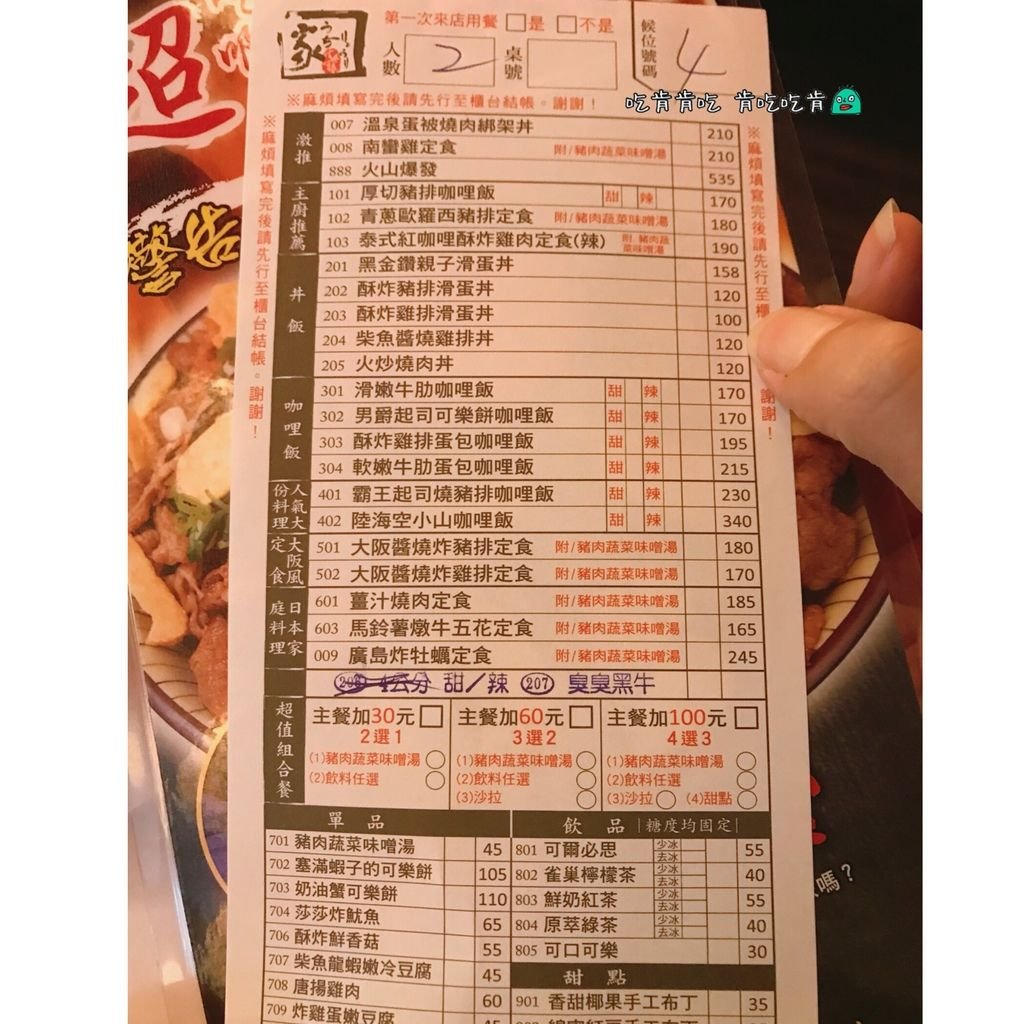 超
警告
家
第一次來店用餐 □是 □不是
人數 2 桌號 候位號碼 4
※麻煩填寫完後請先行至櫃台結帳。謝謝！
吃肯肯吃 肯吃吃肯
※麻煩填寫完後請先行至櫃台結帳。謝謝！
激推
007 溫泉蛋被燒肉綁架丼 210
008 南蠻雞定食 附/豬肉蔬菜味噌湯 210
888 火山爆發 535
主廚推薦
101 厚切豬排咖哩飯 甜 辣 170
102 青蔥歐羅西豬排定食 附/豬肉蔬菜味噌湯 180
103 泰式紅咖哩酥炸雞肉定食(辣) 附/豬肉蔬菜味噌湯 190
丼飯
201 黑金鑽親子滑蛋丼 158
202 酥炸豬排滑蛋丼 120
203 酥炸雞排滑蛋丼 100
204 柴魚醬燒雞排丼 120
205 火炒燒肉丼 120
咖哩飯
301 滑嫩牛肋咖哩飯 甜 辣 170
302 男爵起司可樂餅咖哩飯 甜 辣 170
303 酥炸雞排蛋包咖哩飯 甜 辣 195
304 軟嫩牛肋蛋包咖哩飯 甜 辣 215
人氣大份料理
401 霸王起司燒豬排咖哩飯 甜 辣 230
402 陸海空小山咖哩飯 甜 辣 340
大阪風定食
501 大阪醬燒炸豬排定食 附/豬肉蔬菜味噌湯 180
502 大阪醬燒炸雞排定食 附/豬肉蔬菜味噌湯 170
日本家庭料理
601 薑汁燒肉定食 附/豬肉蔬菜味噌湯 185
603 馬鈴薯燉牛五花定食 附/豬肉蔬菜味噌湯 165
009 廣島炸牡蠣定食 附/豬肉蔬菜味噌湯 245
甜/辣 207 臭臭黑牛
超值組合餐
主餐加30元□ 主餐加60元□ 主餐加100元□
2選1 3選2 4選3
(1)豬肉蔬菜味噌湯○ (1)豬肉蔬菜味噌湯○ (1)豬肉蔬菜味噌湯○
(2)飲料任選○ (2)飲料任選○ (2)飲料任選○
(3)沙拉○ (3)沙拉○ (4)甜點○
單品
701 豬肉蔬菜味噌湯 45
702 塞滿蝦子的可樂餅 105
703 奶油蟹可樂餅 110
704 莎莎炸魷魚 65
706 酥炸鮮香菇 55
707 柴魚龍蝦嫩冷豆腐 45
708 唐揚雞肉 60
709 炸雞蛋嫩豆腐 45
飲品 |糖度均固定|
801 可爾必思 少冰 去冰 55
802 雀巢檸檬茶 少冰 去冰 40
803 鮮奶紅茶 少冰 去冰 55
804 原萃綠茶 少冰 去冰 40
805 可口可樂 30
甜點
901 香甜椰果手工布丁 35
嗎？